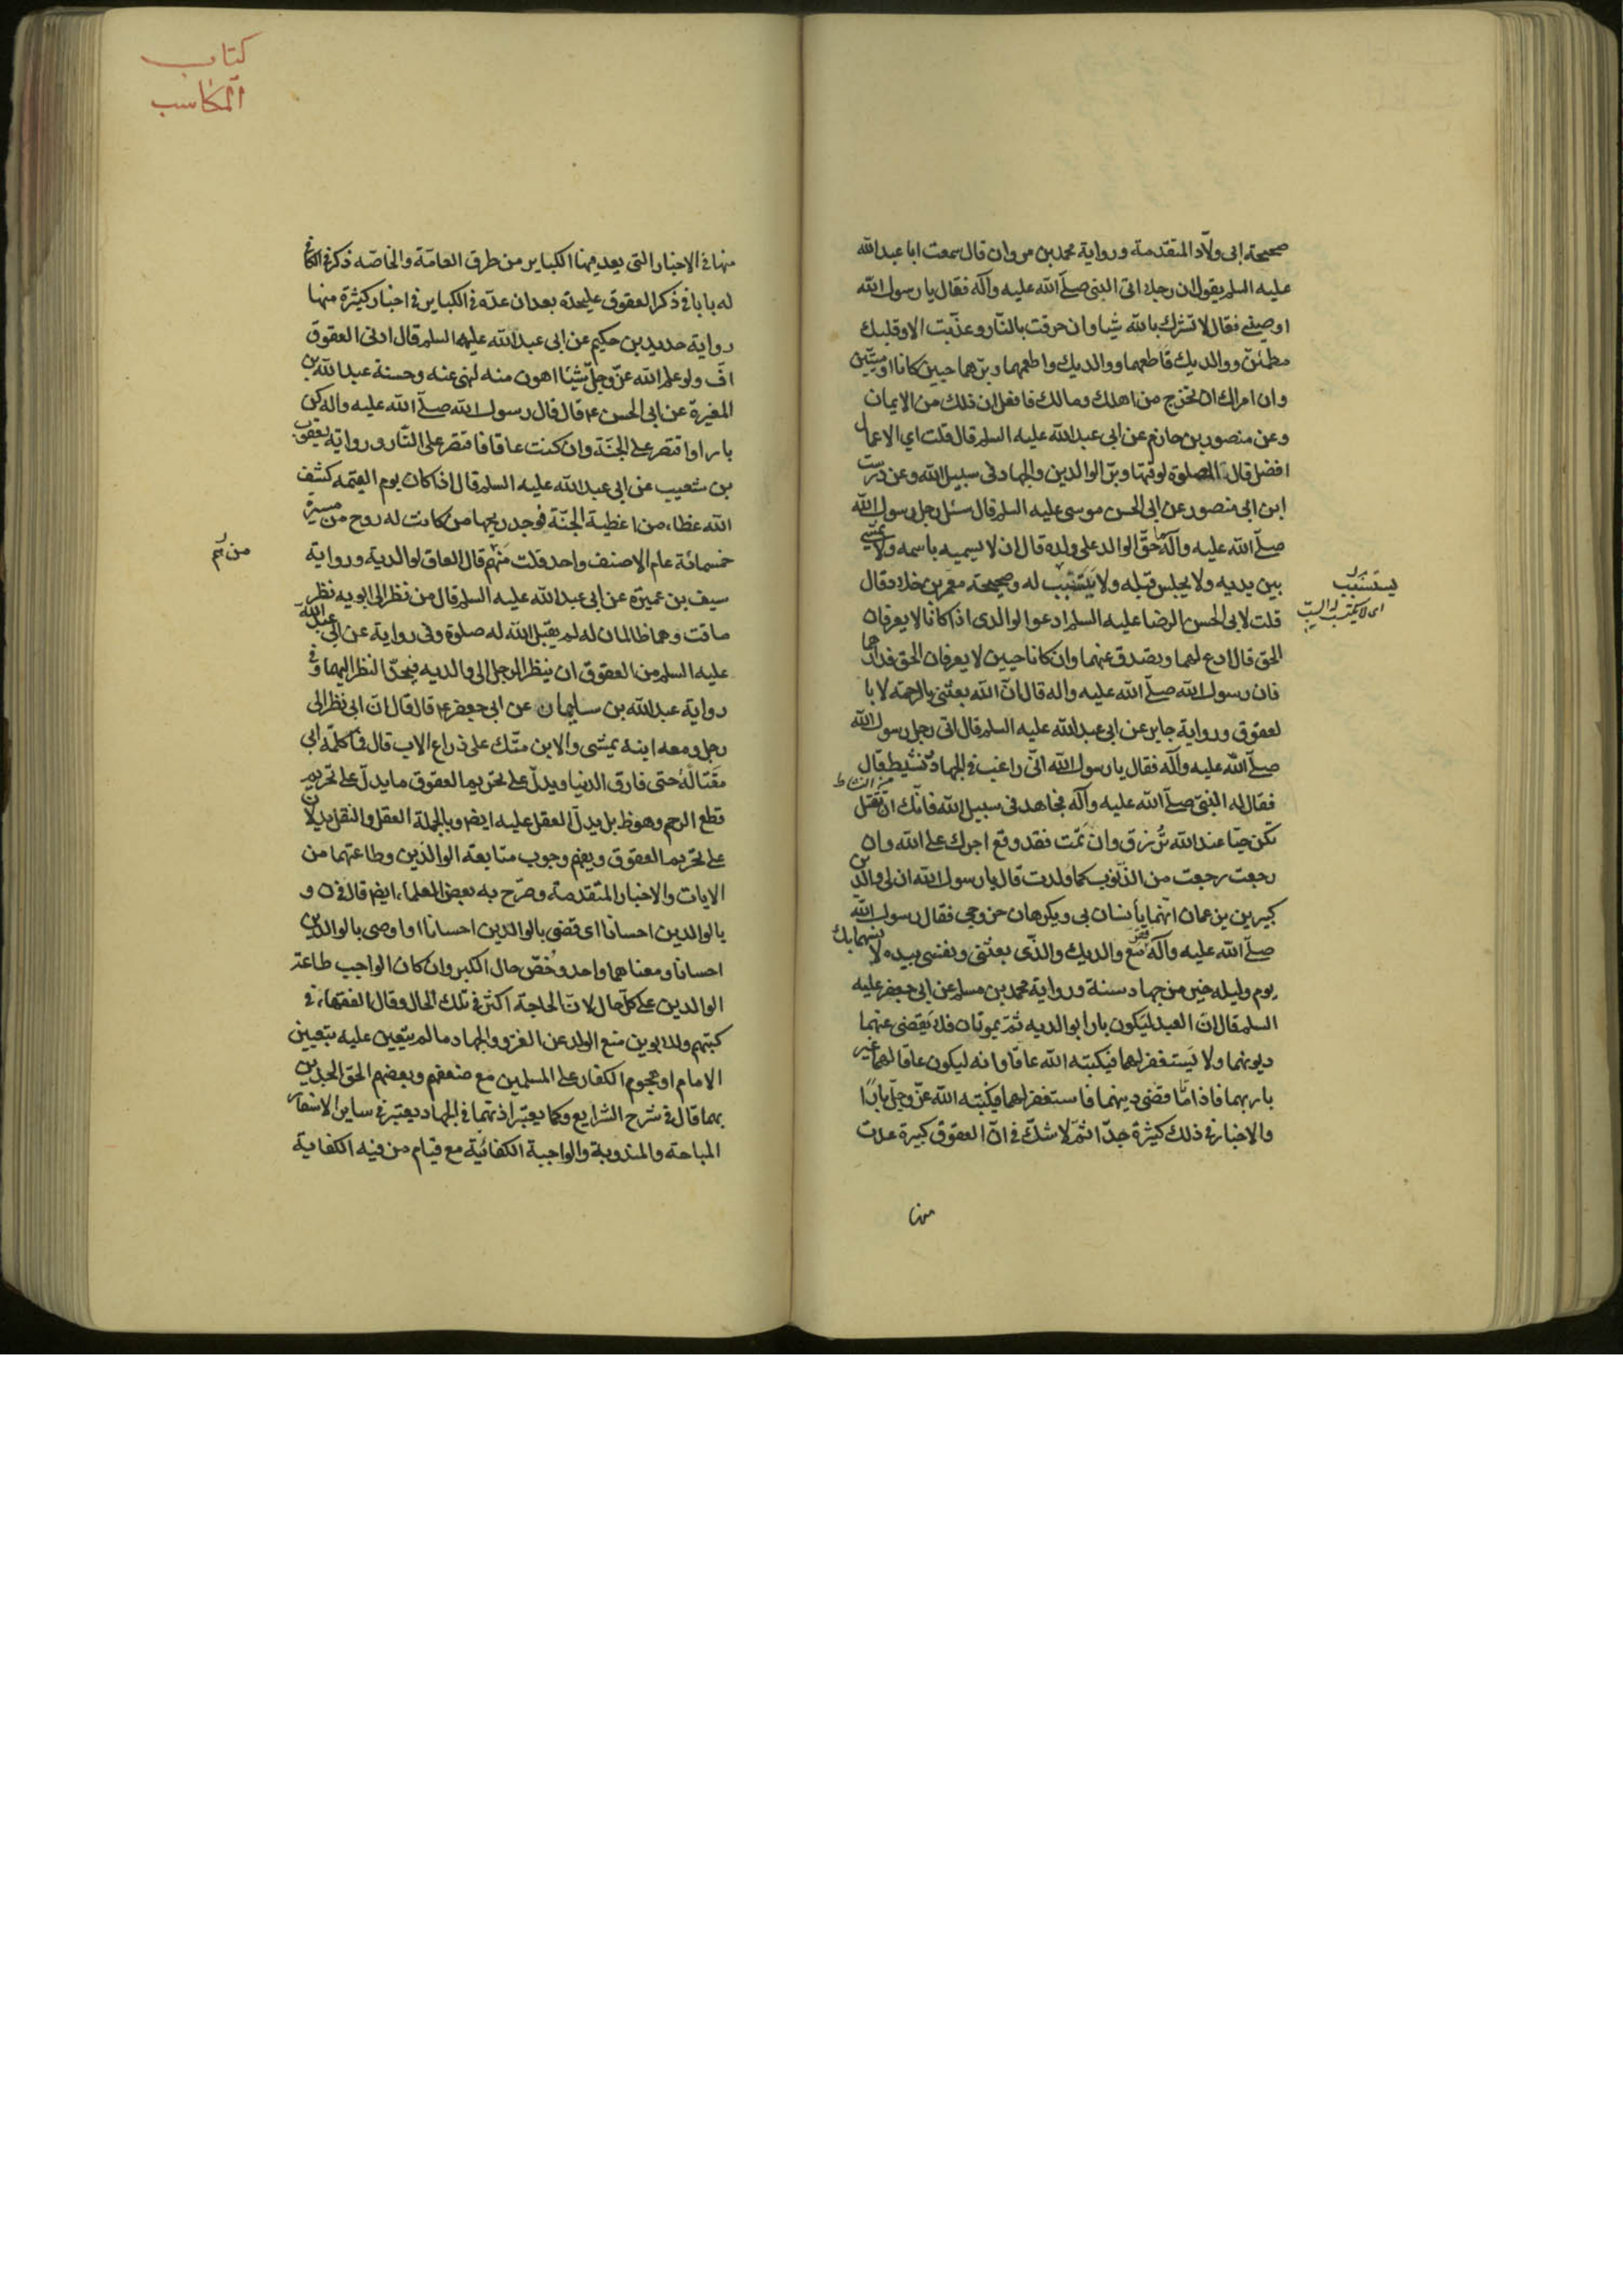 صحيحة ابى ولّاد المتقدمة ورواية محمد بن مروان قال سمعت ابا عبد الله
عليه السلم يقول ان رجلا اتى النبى صلّى الله عليه وآله فقال يا رسول الله
اوصينى فقال لا تشرك بالله شيا وان حرقت بالنّار وعذّبت الا وقلبك
مطمئنّ ووالديك فاطعهما ووالديك واطعهما وبرّهما حيين كانا او ميّتين
وان امراك ان تخرج من اهلك ومالك فافعل ان ذلك من الايمان
وعن منصور بن حازم عن ابى عبد الله عليه السلم قال قلت اى الاعمال
افضل قال الصلوة لوقتها وبرّ الوالدين والجهاد فى سبيل الله وعن درست
ابن ابى منصور عن ابى الحسن موسى عليه السلم قال سئل رجل رسول الله
صلّى الله عليه وآله ما حقّ الوالد على ولده قال ان لا يسميه باسمه ولا يمشى
بين يديه ولا يجلس قبله ولا يستسبّ له وصحيحة معمر بن خلاد قال
يستسبب
قلت لابى الحسن الرضا عليه السلم ادعو الوالدى اذا كانا لا يعرفان
الحق قال ادع لهما وتصدق عنهما وان كانا حيين لا يعرفان الحق فدارهما
فان رسول الله صلّى الله عليه واله قال انّ الله بعثنى بالرحمة لا با
لعقوق ورواية جابر عن ابى عبد الله عليه السلم قال اتى رجل رسول الله
صلّى الله عليه وآله فقال يا رسول الله انّى راغب فى الجهاد نشيط قال
من النشاط
فقال له النبىّ صلّى الله عليه وآله فجاهد فى سبيل الله فانّك ان تقتل
تكن حيّا عند الله تُرزق وان تمت فقد وقع اجرك على الله وان
رجعت رجعت من الذنوب كما ولدت قال يا رسول الله ان لى والدين
كبيرين يزعمان انهما يأنسان بى ويكرهان خروجى فقال رسول الله
صلّى الله عليه وآله فقرّ مع والديك والذّى بعثنى ونفسى بيده لا نسهما بك
يوم وليله خير من جهاد سنة ورواية محمد بن مسلم عن ابى جعفر عليه
السلم قال انّ العبد ليكون بارا بوالديه ثمّ يموتان فلا يقضى عنهما
ديونهما ولا يستغفر لهما فيكتبه الله عاقا وانه ليكون عاقا لهما غير
بار بهما فاذا ماتا قضى دينهما فاستغفر لهما فيكتبه الله عزّ وجلّ بارًا
والاخبار فى ذلك كثيرة جدّا ثمّ لا شكّ فى انّ العقوق كبيرة عدت
منها
كتاب
المكاسب
منها فى الاخبار التى يعد فيها الكباير من طرق العامّة والخاصّه ذكر فى الكافى
له بابا فى ذكر العقوق عليحدّة بعد ان عدّه فى الكباير فى اخبار كثيرة منها
رواية حديد بن حكيم عن ابى عبد الله عليه السلم قال ادنى العقوق
افّ ولو علم الله عزّ وجلّ شيئا اهون منه لنهى عنه وحسنة عبد الله بن
المغيرة عن ابى الحسن ع قال قال رسول الله صلّى الله عليه واله كن
بارا واقتصر على الجنّة وان كنت عاقا فاقتصر على النّار ورواية يعقوب
بن شعيب عن ابى عبد الله عليه السلم قال اذا كان يوم القيمة كشف
الله غطاء من اغطية الجنّة فوجد ريحها من كانت له روح من مسيرة
خمسمائة عام الا صنف واحد قلت منهم قال العاق لوالديه ورواية
من هم
سيف بن عميرة عن ابى عبد الله عليه السلم قال من نظر الى ابويه نظر
ماقت وهما ظالمان له لم يقبل الله له صلوة وفى رواية عن ابى عبد الله
عليه السلم من العقوق ان ينظر الرجل الى والديه فيحدّ النظر اليهما وفى
رواية عبد الله بن سليمان عن ابى جعفر ع قال قال انّ ابى نظر الى
رجل ومعه ابنه يمشى والابن متّك على ذراع الاب قال فما كلّمه ابى
مقتا له حتى فارق الدنيا ويدلّ على تحريم العقوق ما يدلّ على تحريم
قطع الرحم وهو ظ بل يدلّ العقل عليه ايضا وبالجملة العقل والنقل يدلان
على تحريم العقوق ويفهم وجوب متابعة الوالدين وطاعتهما من
الايات والاخبار المتقدمة وصرّح به بعض العلماء ايضا قال فى ن و
بالوالدين احسانا اى قضى بالوالدين احسانا او اوصى بالوالدين
احسانا ومعناهما واحد وخصّ حال الكبر وان كان الواجب طاعة
الوالدين على كلّ حال لانّ الحاجة اكثر فى تلك الحال وقال الفقهاء فى
كتبهم وللابوين منع الولد عن الغزو والجهاد ما لم يتعين عليه بتعيين
الامام او هجوم الكفار على المسلمين مع ضعفهم وبعضهم الحق الجدين
بهما قال فى شرح الشرايع وكما يعتبر اذنهما فى الجهاد يعتبر فى ساير الاسفار
المباحة والمندوبة والواجبة الكفائية مع قيام من فيه الكفاية